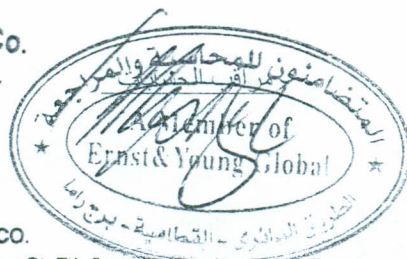 Co.
المتضامنون للمحاسبة والمراجعة
مراقب الحسابات
A Member of
Ernst & Young Global
الطريق الدائرى - القطامية - برج راما
co.